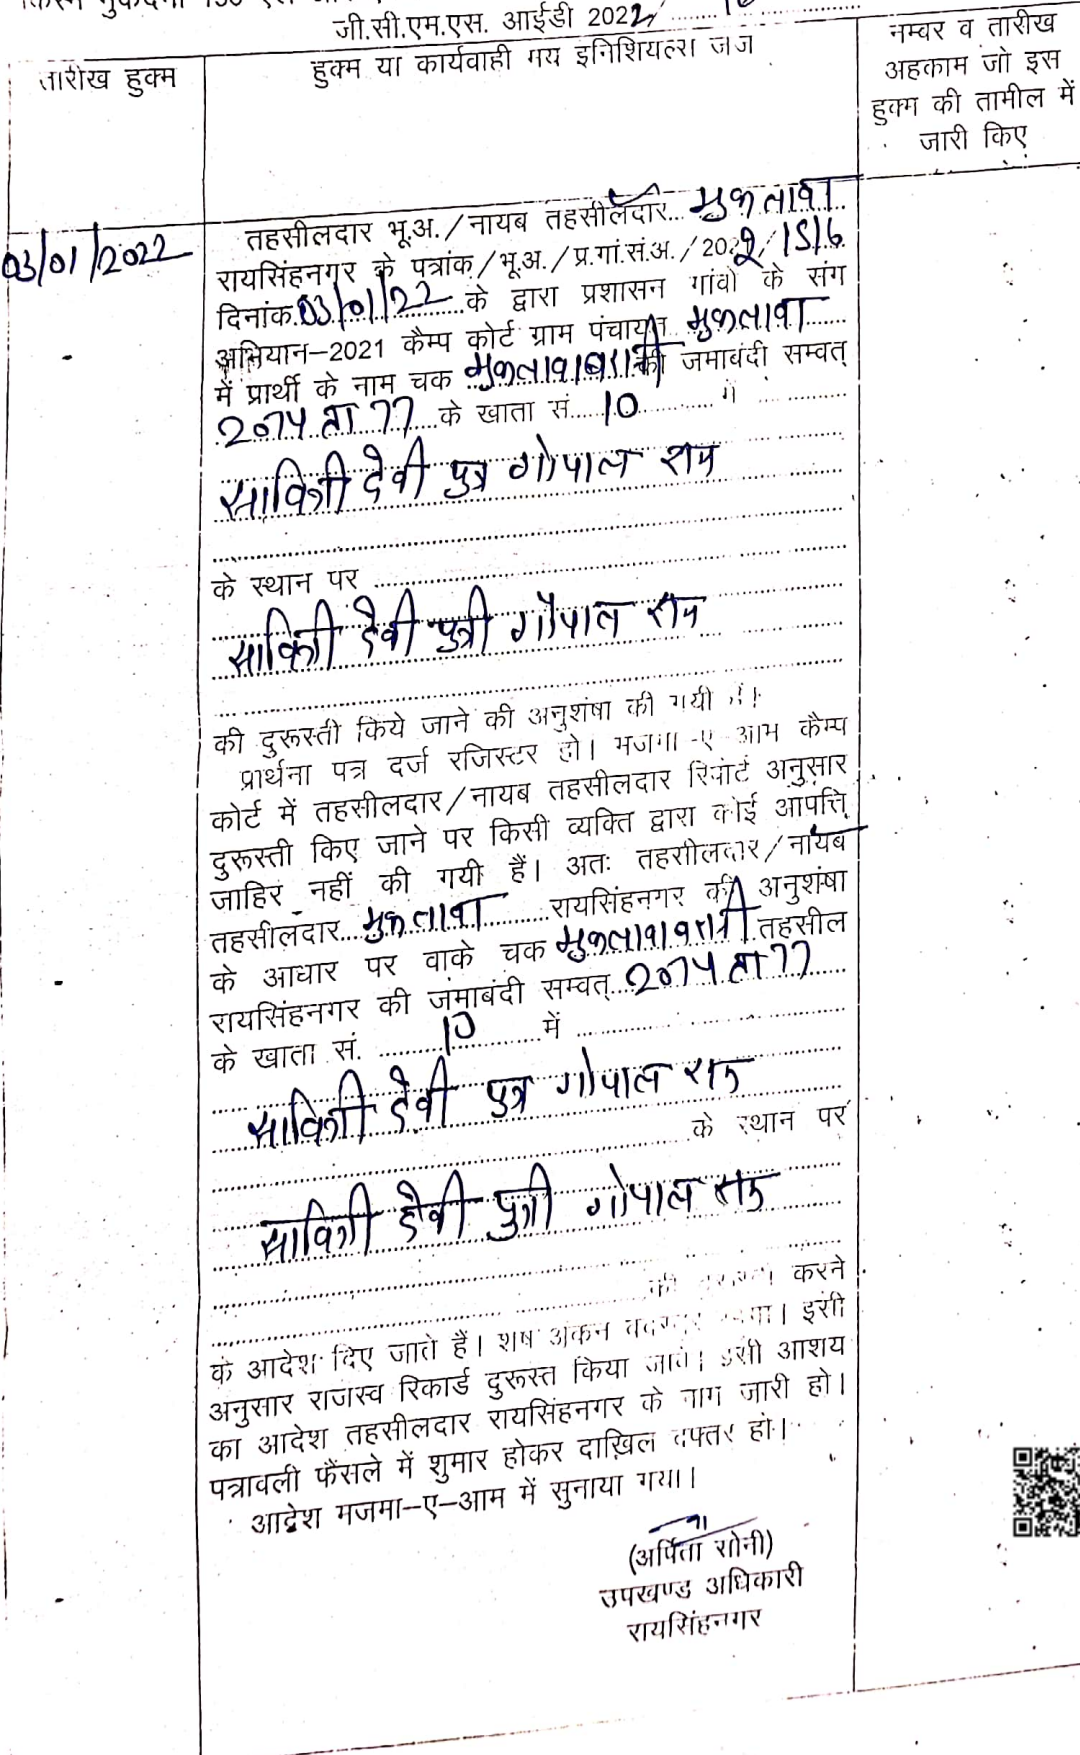 जी.सी.एम.एस. आईडी 2022
तारीख हुक्म
हुक्म या कार्यवाही मय इनिशियल्स जज
नम्वर व तारीख
अहकाम जो इस
हुक्म की तामील में
जारी किए
03/01/2022
तहसीलदार भू.अ./नायब तहसीलदार मुकलावा
रायसिंहनगर के पत्रांक/भू.अ./प्र.गां.सं.अ./2022/
दिनांक 03/01/22 के द्वारा प्रशासन गांवो के संग
अभियान–2021 कैम्प कोर्ट ग्राम पंचायत मुकलावा
में प्रार्थी के नाम चक मुकलावा बारानी की जमाबंदी सम्वत्
2074 ता 77 के खाता सं. 10 में
सावित्री देवी पुत्र गोपाल राम
के स्थान पर
सावित्री देवी पुत्री गोपाल राम
की दुरूस्ती किये जाने की अनुशंषा की गयी है।
प्रार्थना पत्र दर्ज रजिस्टर हो। मजमा-ए-आम कैम्प
कोर्ट में तहसीलदार/नायब तहसीलदार रिपोर्ट अनुसार
दुरूस्ती किए जाने पर किसी व्यक्ति द्वारा कोई आपत्ति
जाहिर नहीं की गयी हैं। अतः तहसीलदार/नायब
तहसीलदार मुकलावा रायसिंहनगर की अनुशंषा
के आधार पर वाके चक मुकलावा बारानी तहसील
रायसिंहनगर की जमाबंदी सम्वत् 2074 ता 77
के खाता सं. 10 में
सावित्री देवी पुत्र गोपाल राम
के स्थान पर
सावित्री देवी पुत्री गोपाल राम
करने
के आदेश दिए जाते हैं। शेष अंकन रहेगा। इसी
अनुसार राजस्व रिकार्ड दुरूस्त किया जावे। इसी आशय
का आदेश तहसीलदार रायसिंहनगर के नाम जारी हो।
पत्रावली फैंसले में शुमार होकर दाखिल दफ्तर हो।
आदेश मजमा–ए–आम में सुनाया गया।
(अर्पिता सोनी)
उपखण्ड अधिकारी
रायसिंहनगर